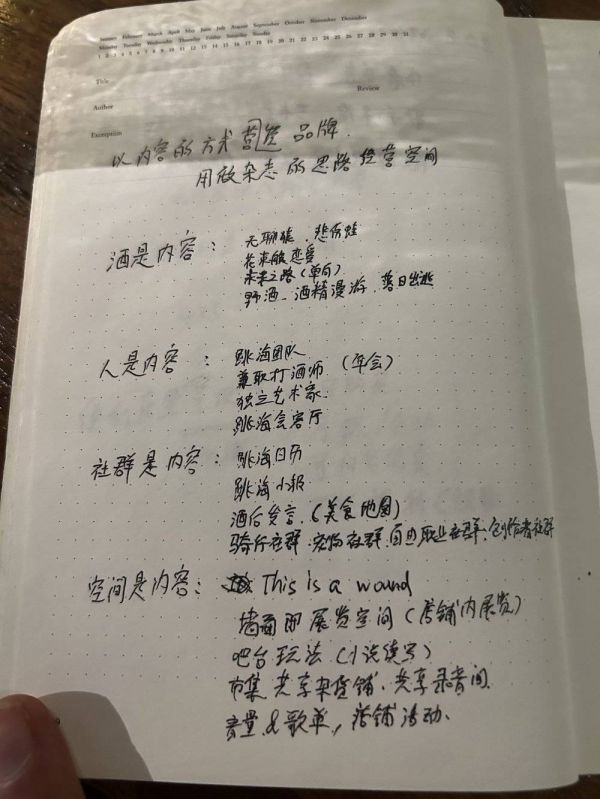 January February March April May June July August September October November December
Monday Tuesday Wednesday Thursday Friday Saturday Sunday
1 2 3 4 5 6 7 8 9 10 11 12 13 14 15 16 17 18 19 20 21 22 23 24 25 26 27 28 29 30 31
Title
Review
Author
Exception
以内容的方式营造品牌.
用做杂志的思路经营空间
酒是内容: 无聊猿、悲伤蛙
花束般恋爱
未来之路(单向)
野酒、酒精漫游、落日出逃
人是内容: 跳海团队
兼职打酒师(年会)
独立艺术家.
跳海会客厅
社群是内容: 跳海日历
跳海小报
酒后发言.(美食地图)
骑行社群、宠物社群、自由职业社群、创作者社群
空间是内容: This is a wound
墙面即展览空间(店铺内展览)
吧台玩法(小说续写)
市集 共享杂货铺、共享录音间.
音量&歌单, 店铺活动.